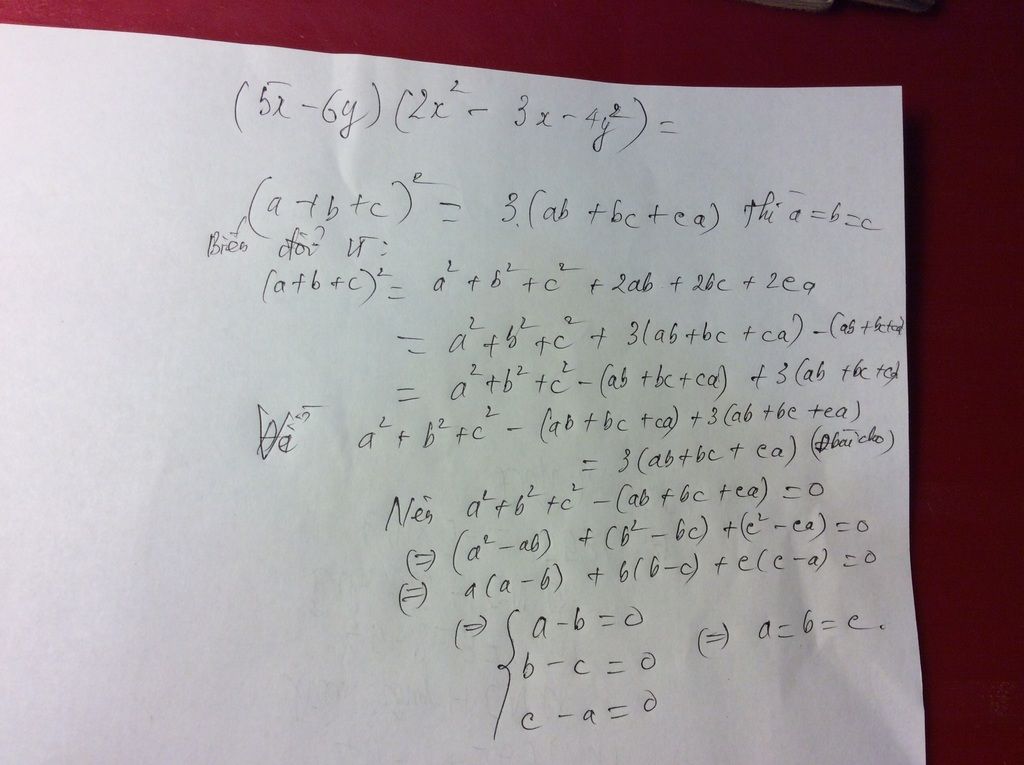 (5x - 6y)(2x² - 3x - 4y²) =
(a + b + c)² = 3.(ab + bc + ca) thì a = b = c
Biến đổi VT:
(a + b + c)² = a² + b² + c² + 2ab + 2bc + 2ca
= a² + b² + c² + 3(ab + bc + ca) - (ab + bc + ca)
= a² + b² + c² - (ab + bc + ca) + 3(ab + bc + ca)
a² + b² + c² - (ab + bc + ca) + 3(ab + bc + ca)
= 3(ab + bc + ca) (bài cho)
Nên a² + b² + c² - (ab + bc + ca) = 0
(=) (a² - ab) + (b² - bc) + (c² - ca) = 0
(=) a(a - b) + b(b - c) + c(c - a) = 0
(=) { a - b = 0 (=) a = b = c.
b - c = 0
c - a = 0